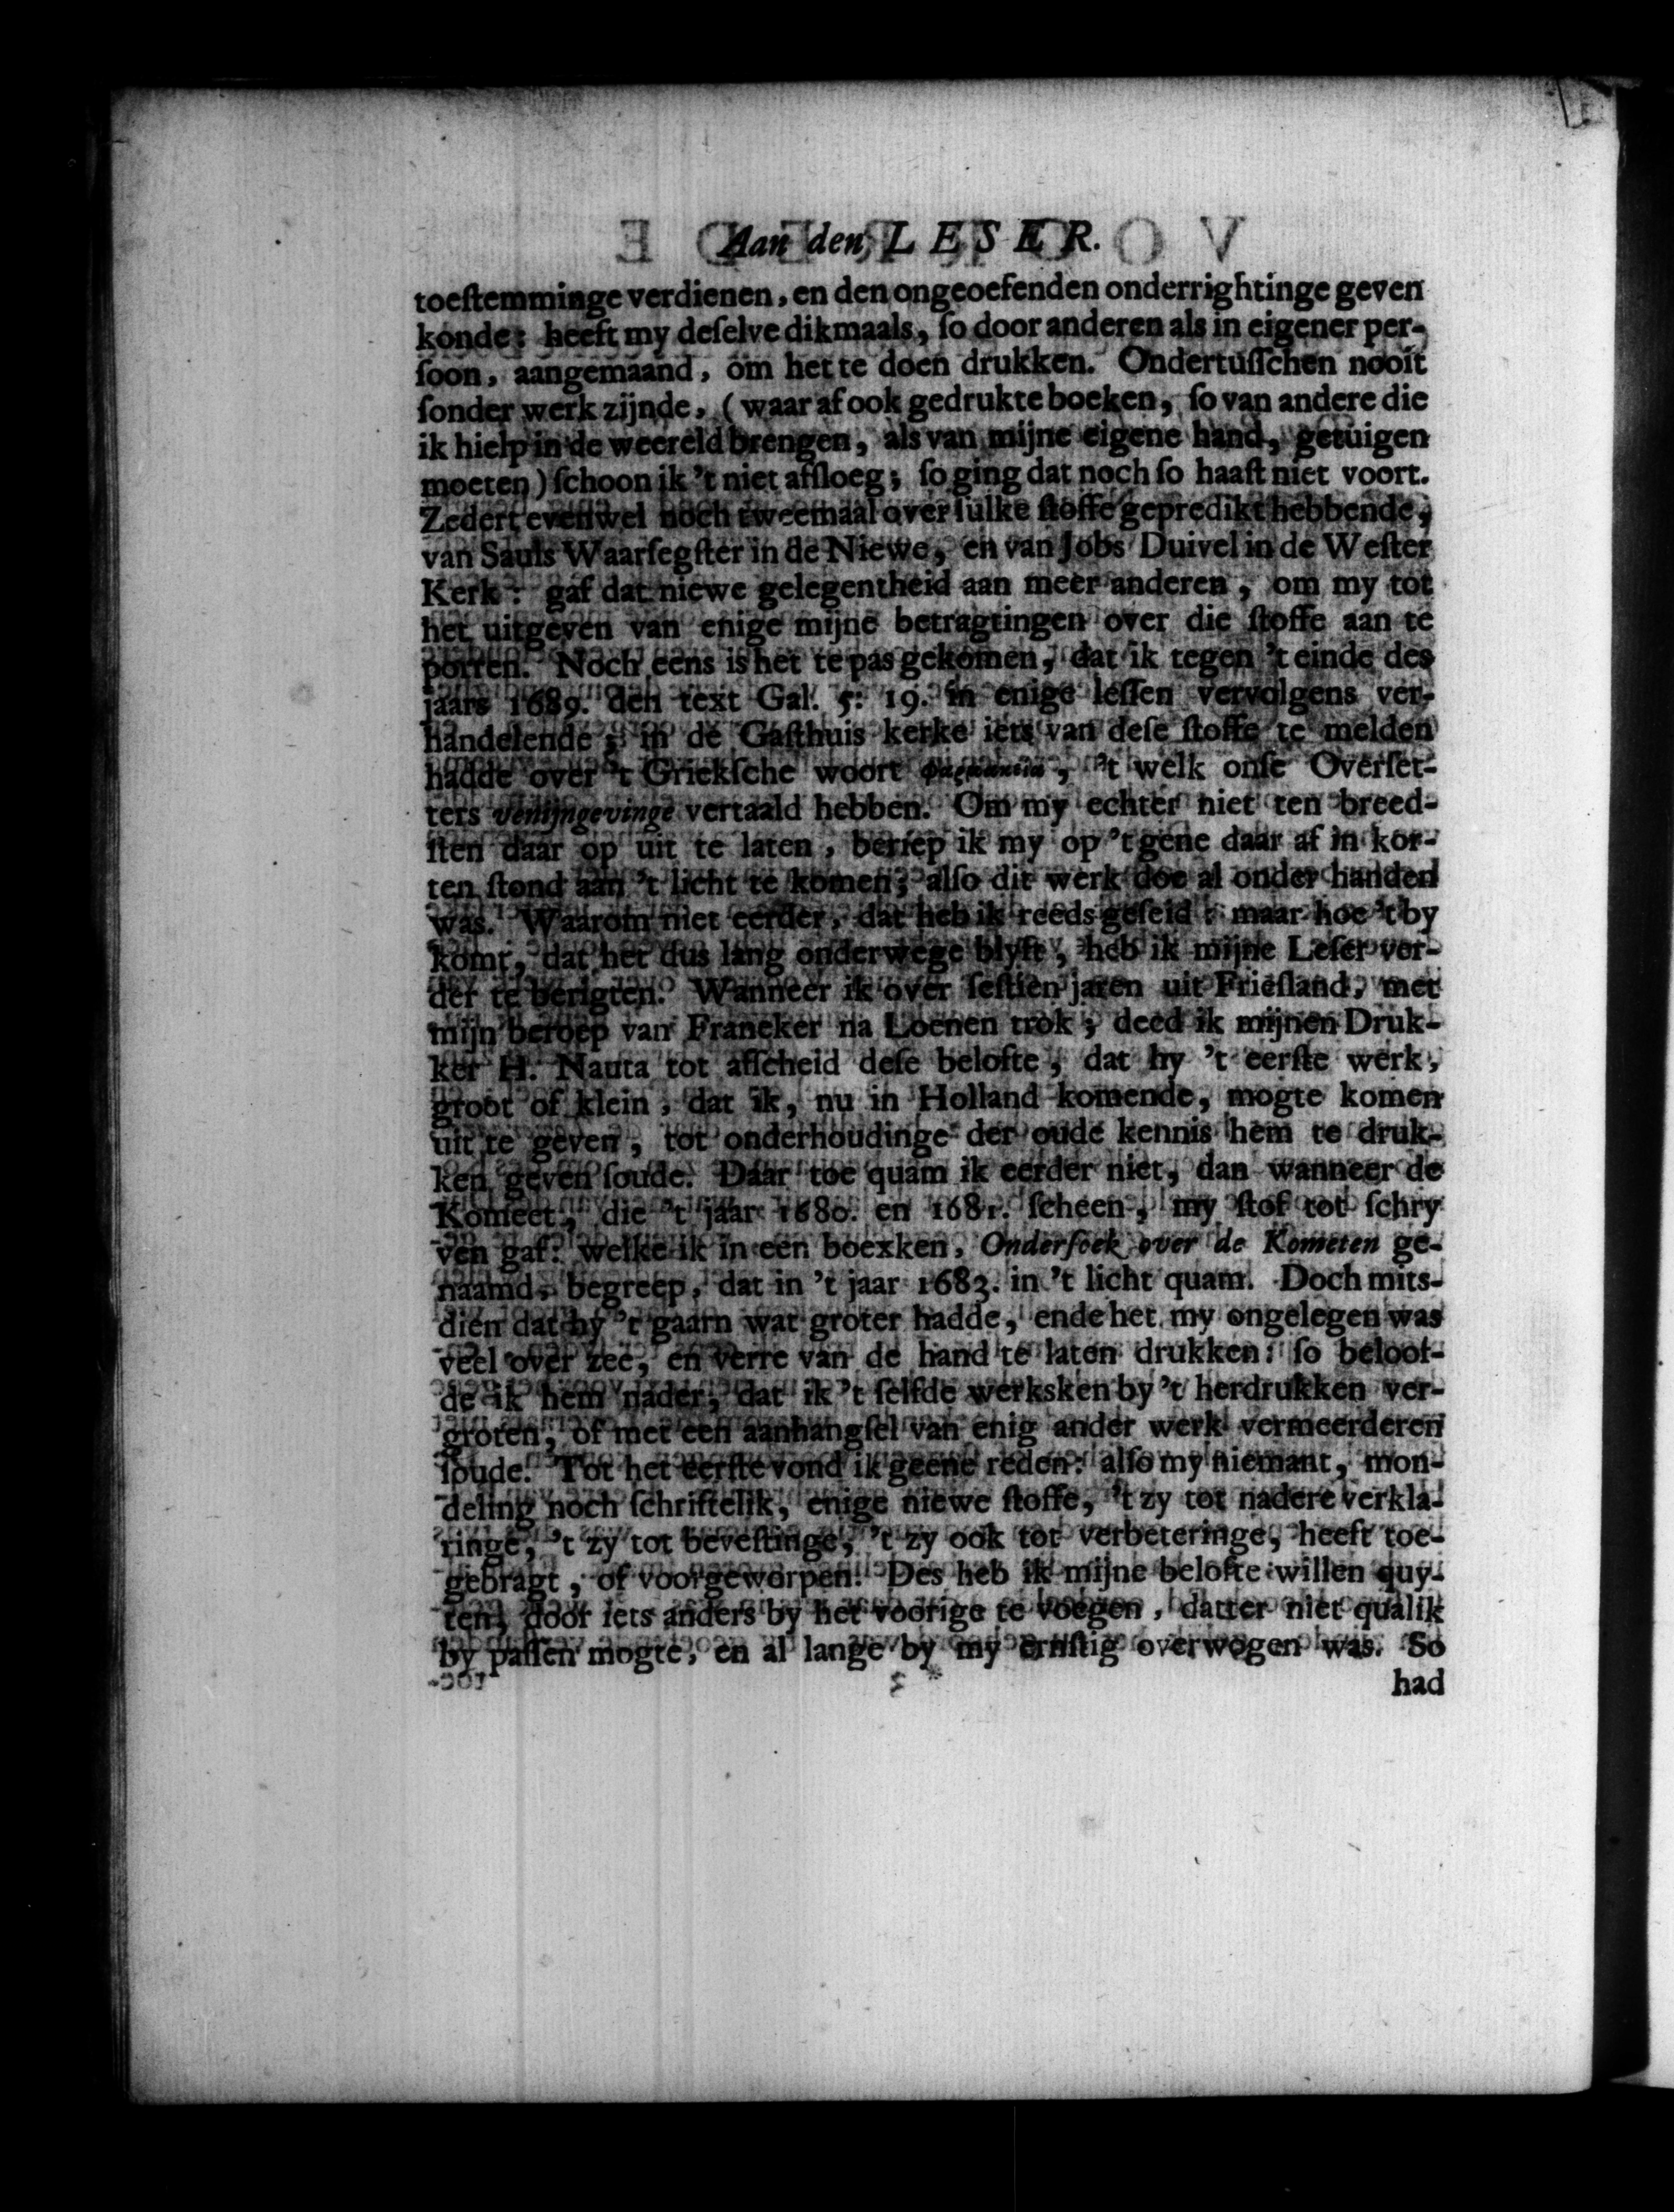 Aan den LESER.
toeſtemminge verdienen, en den ongeoefenden onderrightinge geven
konde: heeft my deſelve dikmaals, ſo door anderen als in eigener per-
ſoon, aangemaand, om het te doen drukken. Ondertuſſchen nooit
ſonder werk zijnde, (waar af ook gedrukte boeken, ſo van andere die
ik hielp in de weereld brengen, als van mijne eigene hand, getuigen
moeten) ſchoon ik 't niet afſloeg; ſo ging dat noch ſo haaſt niet voort.
Zedert evenwel noch tweemaal over ſulke ſtoffe gepredikt hebbende,
van Sauls Waarſegſter in de Niewe, en van Jobs Duivel in de Weſter
Kerk: gaf dat niewe gelegentheid aan meer anderen, om my tot
het uitgeven van enige mijne betragtingen over die ſtoffe aan te
porren. Noch eens is het te pas gekomen, dat ik tegen 't einde des
jaars 1689. den text Gal. 5: 19. in enige leſſen vervolgens ver-
handelende; in de Gaſthuis kerke iets van deſe ſtoffe te melden
hadde over 't Griekſche woort , 't welk onſe Overſet-
ters venijngevinge vertaald hebben. Om my echter niet ten breed-
ſten daar op uit te laten, beriep ik my op 't gene daar af in kor-
ten ſtond aan 't licht te komen; alſo dit werk doe al onder handen
was. Waarom niet eerder, dat heb ik reeds geſeid: maar hoe 't by
komt, dat het dus lang onderwege blyft, heb ik mijne Leſer ver-
der te berigten. Wanneer ik over ſeſtien jaren uit Frieſland, met
mijn beroep van Franeker na Loenen trok; deed ik mijnen Druk-
ker H. Nauta tot afſcheid deſe belofte, dat hy 't eerſte werk,
groot of klein, dat ik, nu in Holland komende, mogte komen
uit te geven, tot onderhoudinge der oude kennis hem te druk-
ken geven ſoude. Daar toe quam ik eerder niet, dan wanneer de
Komeet, die 't jaar 1680. en 1681. ſcheen, my ſtof tot ſchry
ven gaf: welke ik in een boexken, Onderſoek over de Kometen ge-
naamd, begreep, dat in 't jaar 1683. in 't licht quam. Doch mits-
dien dat hy 't gaarn wat groter hadde, ende het my ongelegen was
veel over zee, en verre van de hand te laten drukken: ſo beloof-
de ik hem nader, dat ik 't ſelfde werksken by 't herdrukken ver-
groten, of met een aanhangſel van enig ander werk vermeerderen
ſoude. Tot het eerſte vond ik geene reden: alſo my niemant, mon-
deling noch ſchriftelik, enige niewe ſtoffe, 't zy tot nadere verkla-
ringe, 't zy tot beveſtinge, 't zy ook tot verbeteringe, heeft toe-
gebragt, of voorgeworpen. Des heb ik mijne belofte willen quy-
ten, door iets anders by het voorige te voegen, datter niet qualik
by paſſen mogte, en al lange by my ernſtig overwogen was. So
had